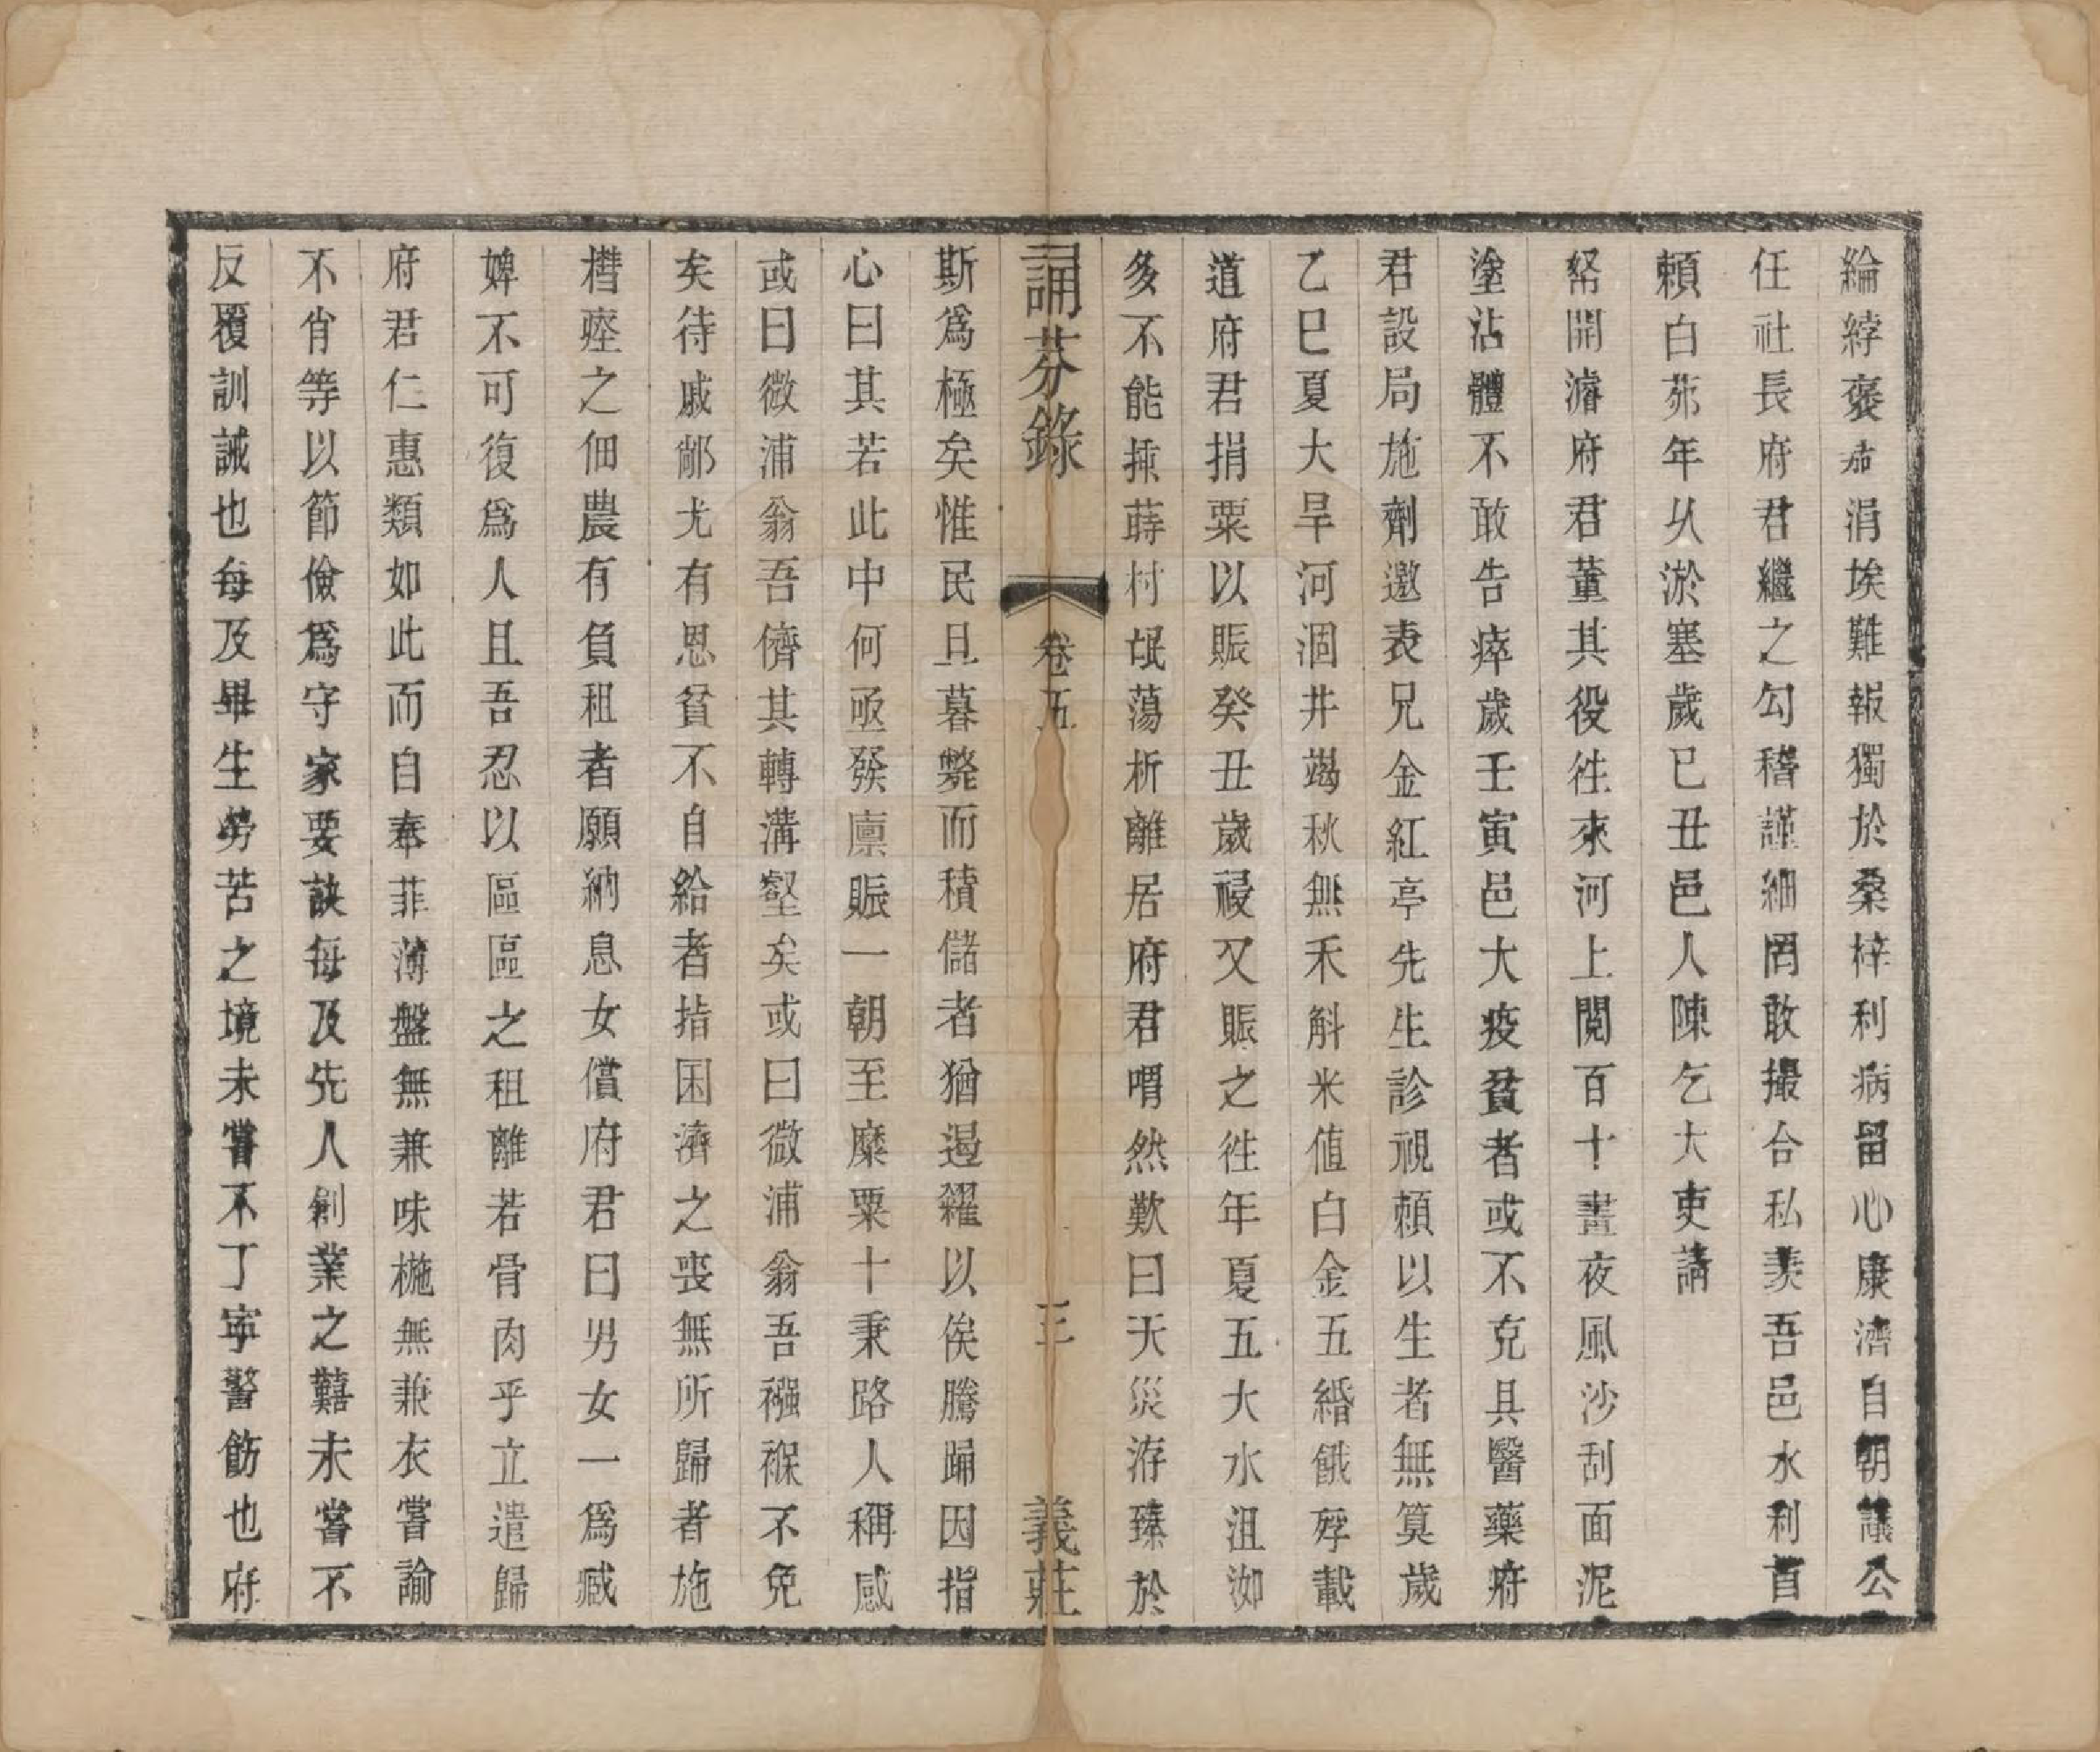 綸綍褒茄涓埃難報獨於桑梓利病留心康濟自朝議公
任社長府君繼之勾稽謹細罔敢撮合私羨吾邑水利首
賴白茆年久淤塞歲巳丑邑人陳乞大吏請
帑開濬府君董其役徃來河上閱百十晝夜風沙刮面泥
塗沾體不敢告瘁歲壬寅邑大疫貧者或不克具醫藥府
君設局施劑邀表兄金紅亭先生診視賴以生者無算歲
乙巳夏大旱河涸井竭秋無禾斛米值白金五緡餓殍載
道府君捐粟以賑癸丑歲祲又賑之徃年夏五大水沮洳
多不能揷蒔村氓蕩析離居府君喟然歎曰天災洊臻於
誦芬錄
卷五
三
義莊
斯爲極矣惟民旦暮斃而積儲者猶遏糴以俟騰踊因指
心曰其若此中何亟發廩賑一朝至糜粟十秉路人稱感
或曰微浦翁吾儕其轉溝壑矣或曰微浦翁吾襁褓不免
矣待戚鄰尤有恩貧不自給者指囷濟之喪無所歸者施
槥瘞之佃農有負租者願納息女償府君曰男女一爲臧
婢不可復爲人且吾忍以區區之租離若骨肉乎立遣歸
府君仁惠類如此而自奉菲薄盤無兼味椸無兼衣嘗諭
不肖等以節儉爲守家要訣每及先人創業之囏未嘗不
反覆訓誡也每及畢生勞苦之境未嘗不丁寕警飭也府